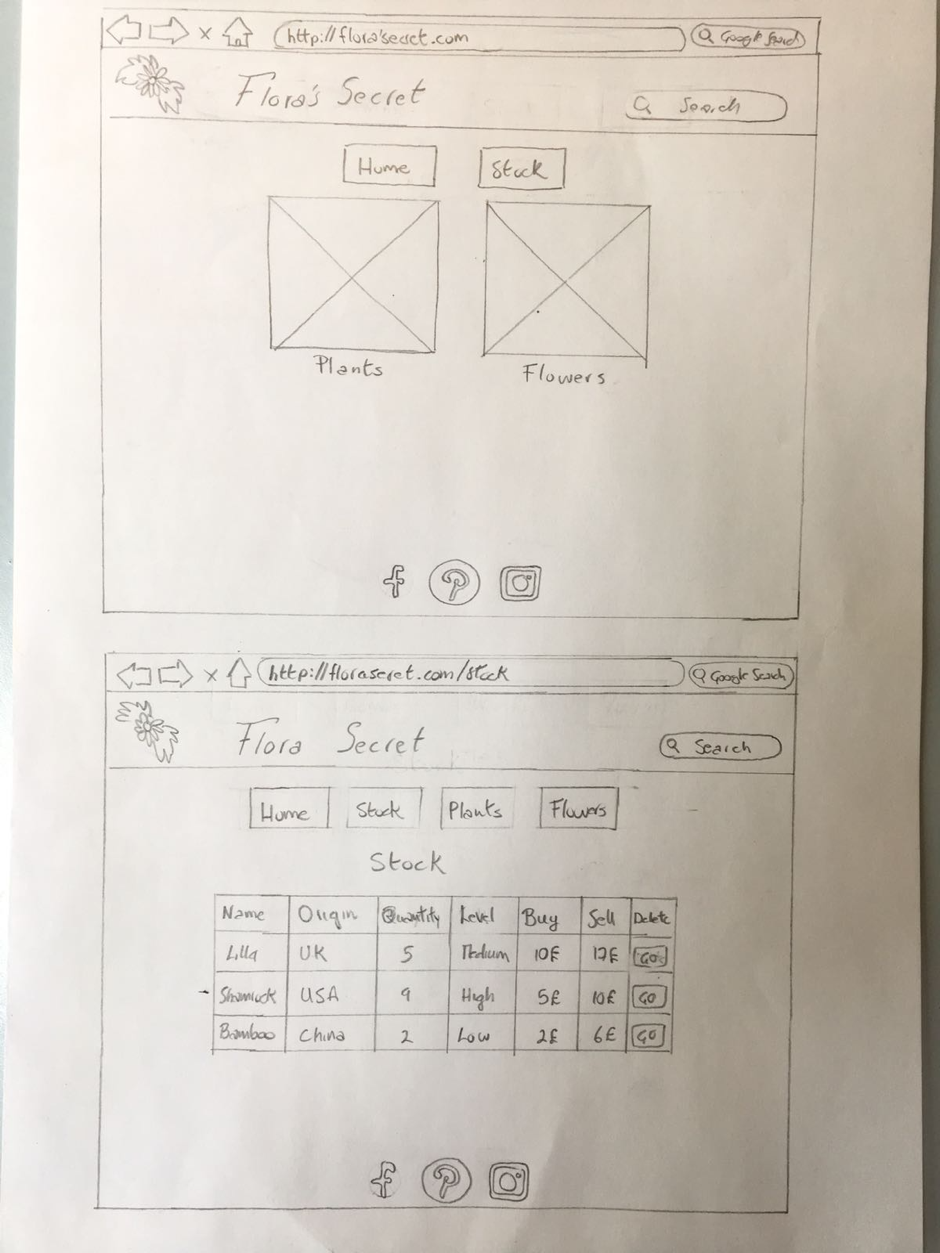 × http://flora'secret.com Google Search
Flora's Secret Search
Home Stock
Plants Flowers
f P
× http://florasecret.com/stock Google Search
Flora Secret Search
Home Stock Plants Flowers
Stock
Name Origin Quantity Level Buy Sell Delete
Lilla UK 5 Medium 10£ 17£ GO
Shamrock USA 9 High 5£ 10£ GO
Bamboo China 2 Low 2£ 6£ GO
f P